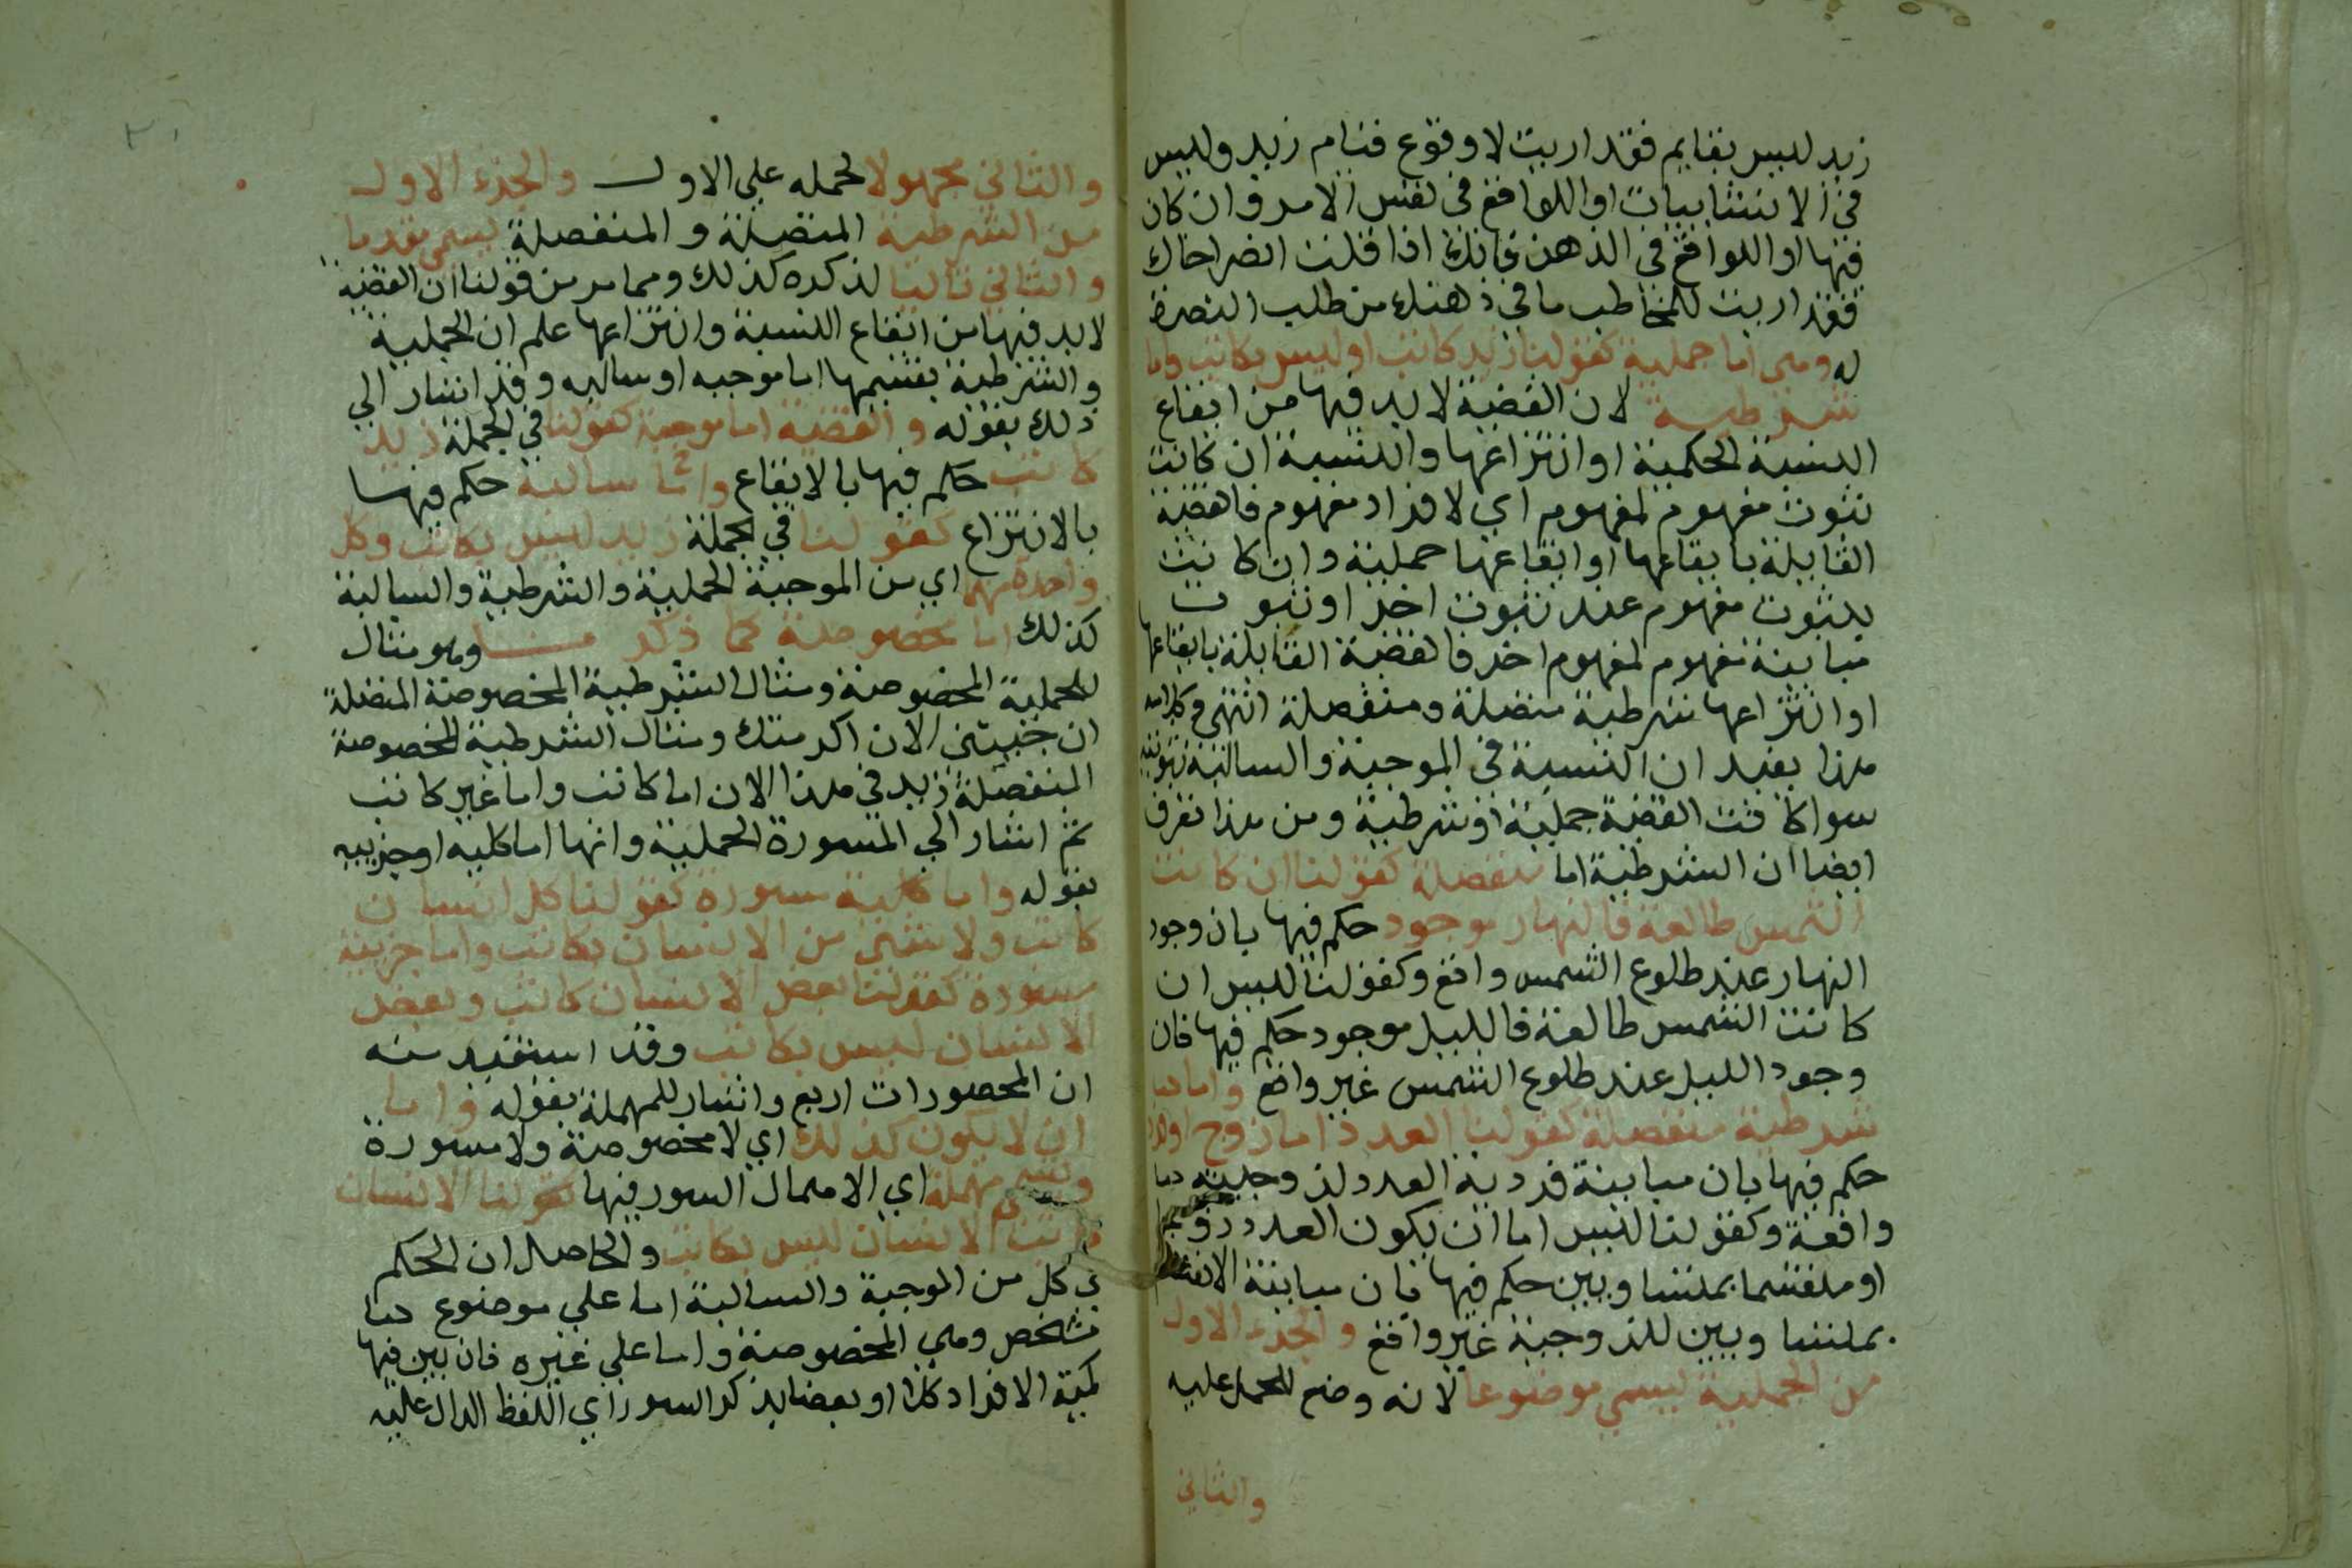 زيد ليس بقايم فقد اربت لا وقوع قيام زيد وليس
في الانشاييات او اللواقع في نفس الامر وان كان
فيها او اللواقع في الذهن فانك اذا قلت اضرب اخاك
فقد اربت للمخاطب ما في ذهنك من طلب الضرب
له وهي اما حملية كقولنا زيد كاتب او ليس بكاتب واما
شرطية لان القضية لا بد فيها من ايقاع
النسبة الحكمية او انتزاعها والنسبة ان كانت
ثبوت مفهوم لمفهوم اي لافراد مفهوم فاهضية
القايلة بايقاعها او ايقاعها حملية وان كانت
بثبوت مفهوم عند ثبوت اخر او ثبوت
مباينة مفهوم لمفهوم اخر فالقضية القايلة بايقاعها
او انتزاعها شرطية متصلة ومنفصلة انتهي وكلامه
هذا يفيد ان النسبة في الموجبة والسالبة ثبوتية
سوا كانت القضية حملية او شرطية ومن هذا تعرف
ايضا ان الشرطية اما متصلة كقولنا ان كانت
الشمس طالعة فالنهار موجود حكم فيها بان وجود
النهار عند طلوع الشمس واقع وكقولنا ليس ان
كانت الشمس طالعة فالليل موجود حكم فيها فان
وجود الليل عند طلوع الشمس غير واقع واما
شرطية منفصلة كقولنا العدد اما زوج او
حكم فيها بان مباينة فردية العدد لزوجيته
واقعة وكقولنا ليس اما ان يكون العدد زوجا
او منقسما بمتساويين حكم فيها فان مباينة الانقسام
بمتساويين للزوجية غير واقع والجزء الاول
من الحملية يسمي موضوعا لانه وضع للحمل عليه
والثاني
والثاني محمولا لحمله علي الاول والجزء الاول
من الشرطية المتصلة والمنفصلة يسمي مقدما
والثاني تاليا لذكره كذلك ومما مر من قولنا ان القضية
لا بد فيها من ايقاع النسبة وانتزاعها علم ان الحملية
والشرطية بقسيمها اما موجبه او سالبه وقد اشار الي
ذلك بقوله والقضية اما موجبة كقولنا في الحملة زيد
كاتب حكم فيها بالايقاع واما سالبة حكم فيها
بالانتزاع كقولنا في الحملة زيد ليس بكاتب وكل
واحدة منهما اي من الموجبة الحملية والشرطية والسالبة
كذلك اما مخصوصة كما ذكر وهو مثال
للحملية المخصوصة ومثال الشرطية المخصوصة المتصلة
ان جيتني الان اكرمتك ومثال الشرطية المخصوصة
المنفصلة زيد في هذا الان اما كاتب واما غير كاتب
ثم اشار الي المسورة الحملية وانها اما كليه او جزييه
بقوله واما كلية مسورة كقولنا كل انسان
كاتب ولا شي من الانسان بكاتب واما جزيية
مسورة كقولنا بعض الانسان كاتب وبعض
الانسان ليس بكاتب وقد استفيد منه
ان المحصورات اربع واشار للمهملة بقوله واما
ان لا يكون كذلك اي لا مخصوصة ولا مسورة
وتسمي مهملة اي الاهمال السور فيها كقولنا الانسان
كاتب الانسان ليس بكاتب والحاصل ان الحكم
في كل من الموجبة والسالبة اما علي موضوع
مشخص وهي المخصوصة واما علي غيره فان بين فيها
كمية الافراد كلا او بعضا يذكر السور اي اللفظ الدال عليه